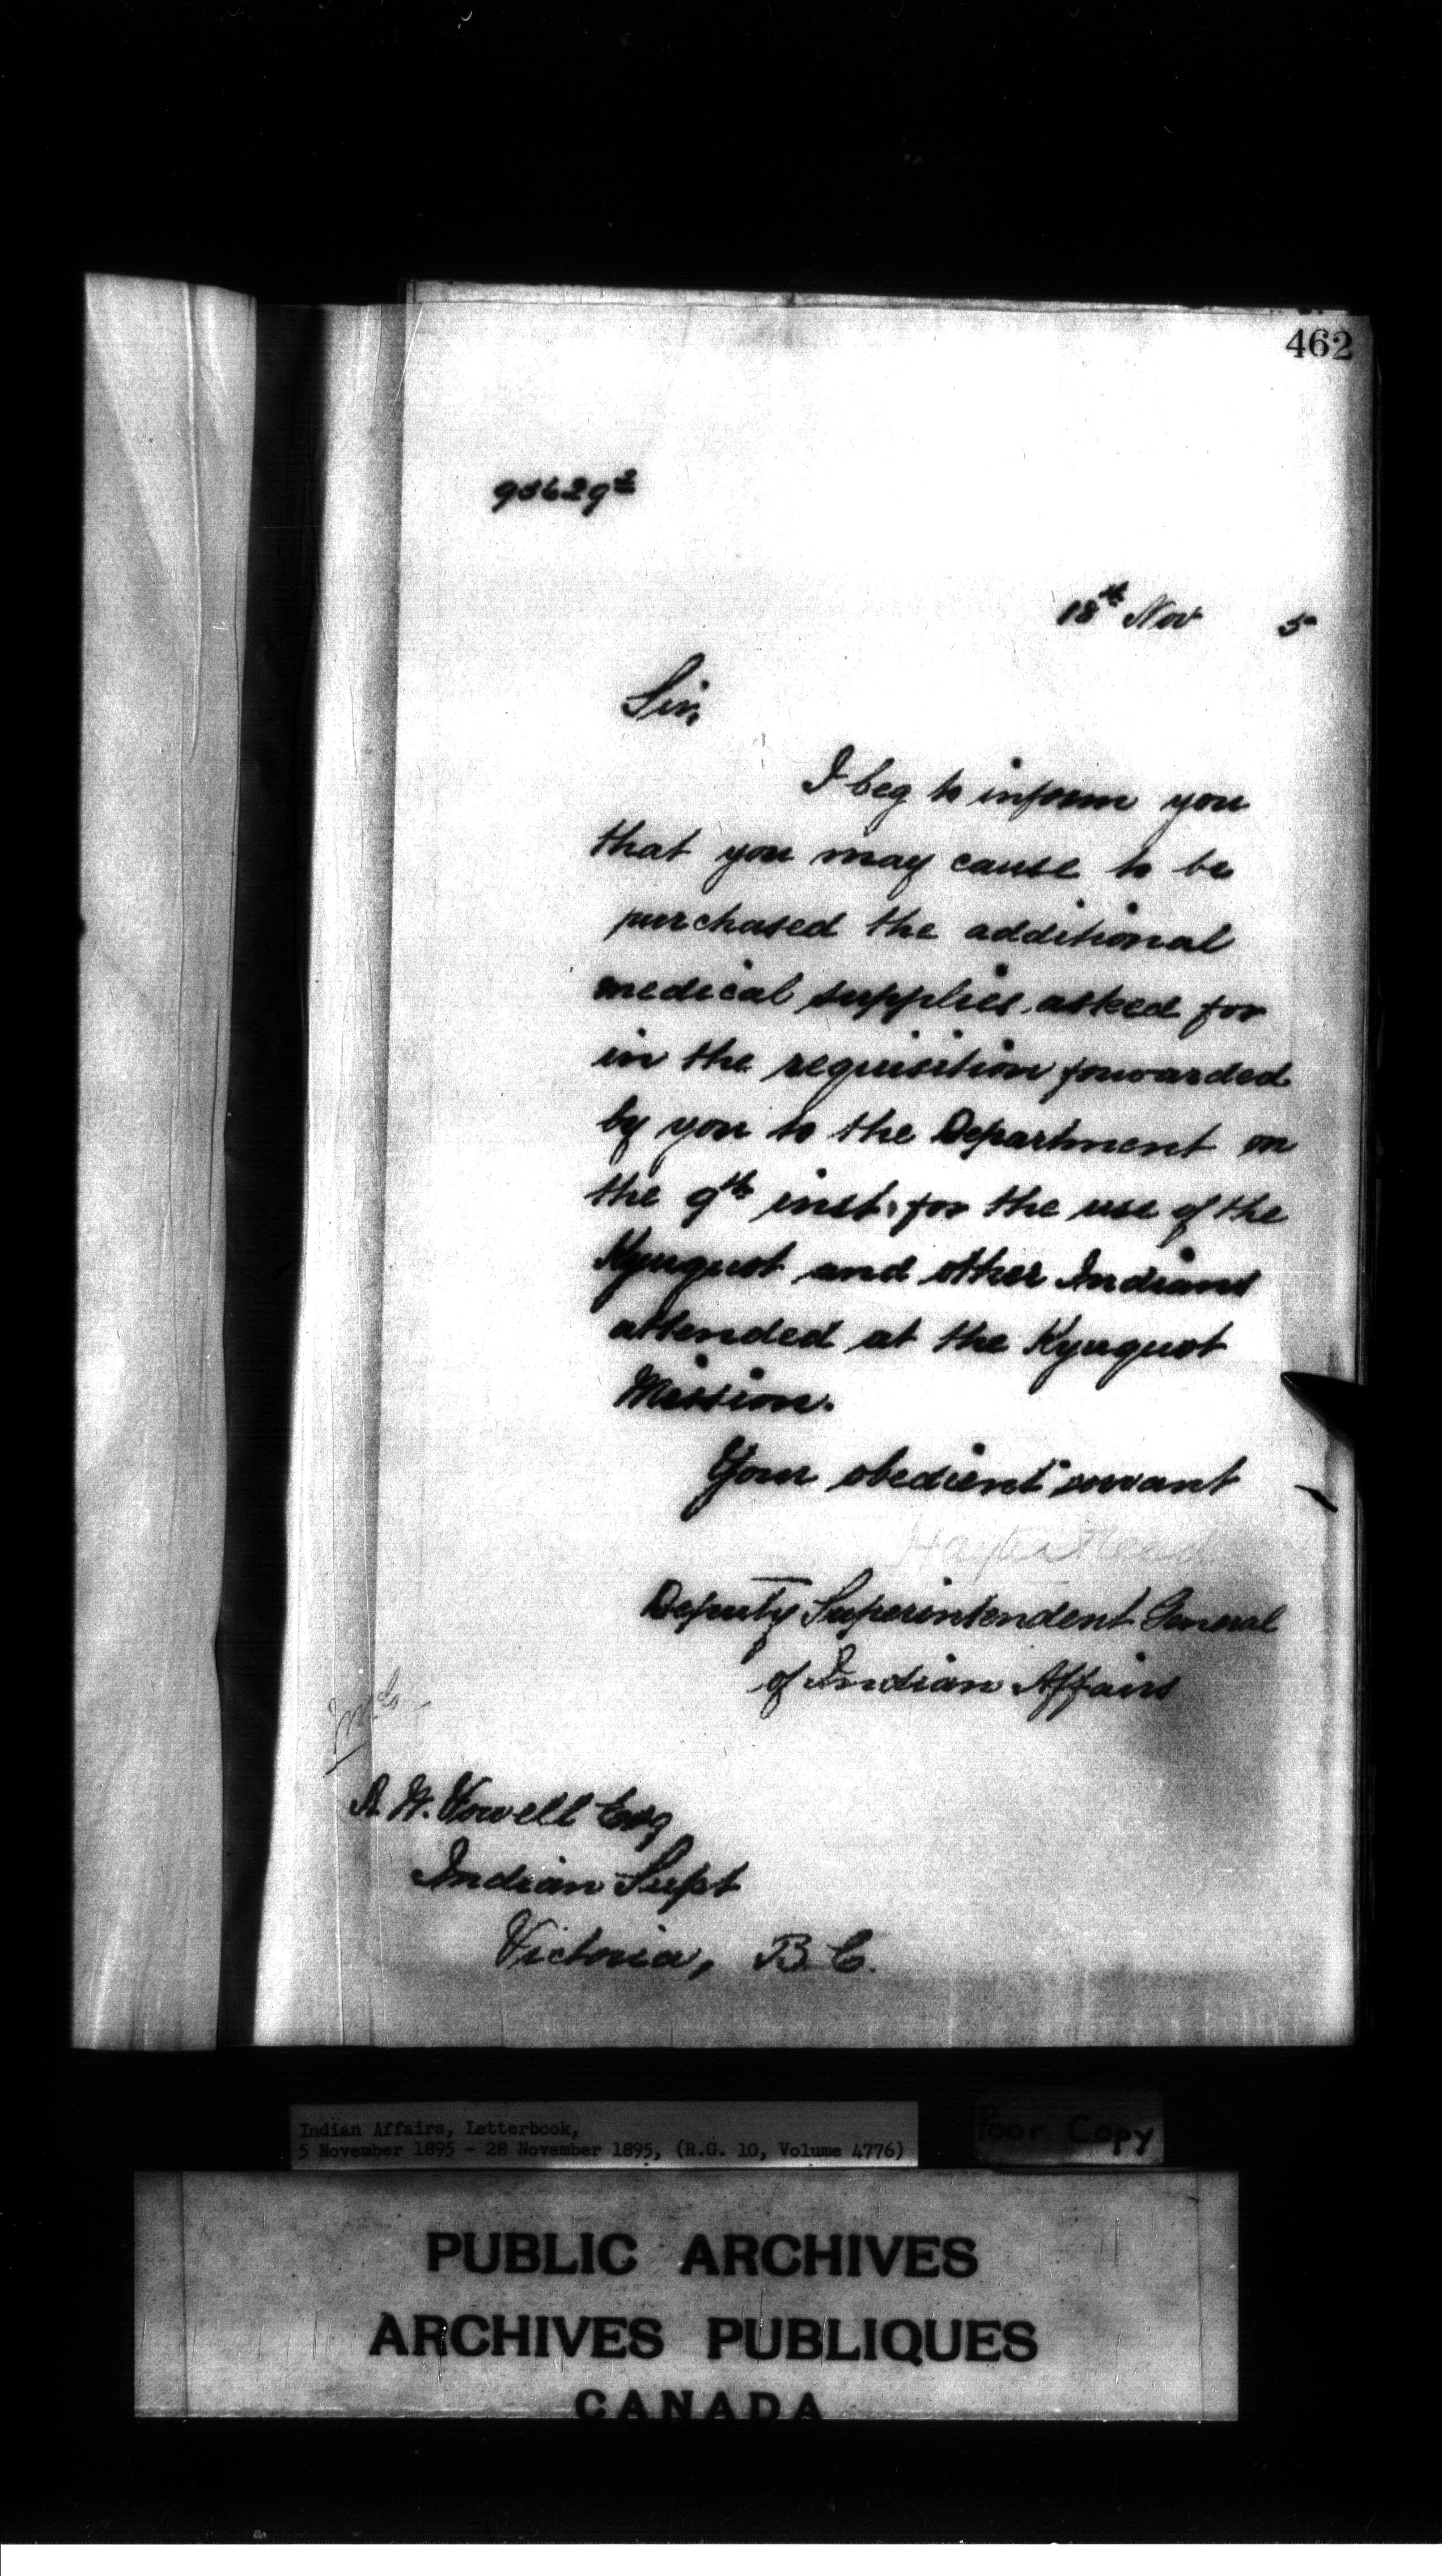 462
18th Nov 5
Sir,
I beg to inform you
that you may cause to be
purchased the additional
medical supplies asked for
in the requisition forwarded
by you to the Department on
the 9th inst. for the use of the
Kyuquot and other Indians
attended at the Kyuquot
Mission.
Your obedient servant
Hayter Reed
Deputy Superintendent General
of Indian Affairs
A. W. Vowell Esq
Indian Supt
Victoria, B.C.
Indian Affairs, Letterbook,
5 November 1895 - 28 November 1895, (R.G. 10, Volume 4776)
Poor Copy
PUBLIC ARCHIVES
ARCHIVES PUBLIQUES
CANADA